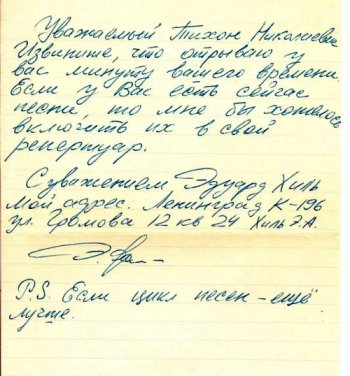 Уважаемый Тихон Николаевич
Извините, что отрываю у
вас минуту вашего времени.
Если у Вас есть сейчас
песни, то мне бы хотелось
включить их в свой
репертуар.
С уважением Эдуард Хиль
Мой адрес: Ленинград К-196
ул. Громова 12 кв 24 Хиль Э.А.
P.S. Если цикл песен - ещё
лучше.